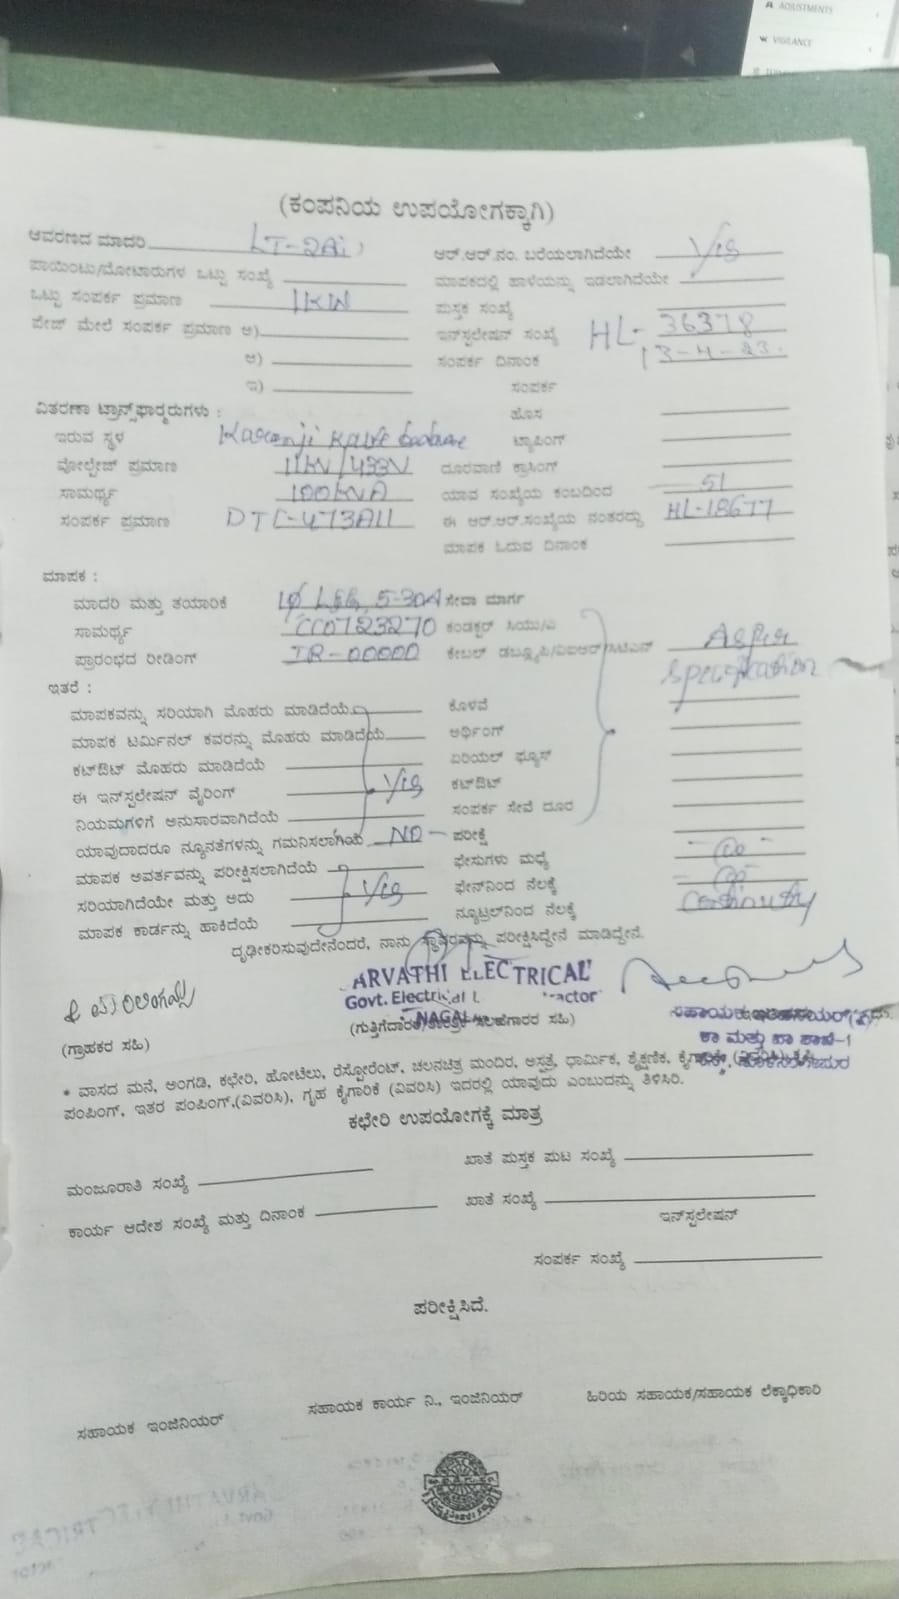 ADJUSTMENTS
VIGILANCE
(ಕಂಪನಿಯ ಉಪಯೋಗಕ್ಕಾಗಿ)
ಆವರಣದ ಮಾದರಿ LT-2Ai) ಆರ್.ಆರ್.ನಂ. ಬರೆಯಲಾಗಿದೆಯೇ
ಪಾಯಿಂಟು/ಮೋಟಾರುಗಳ ಒಟ್ಟು ಸಂಖ್ಯೆ ಮಾಪಕದಲ್ಲಿ ಹಾಳೆಯನ್ನು ಇಡಲಾಗಿದೆಯೇ
ಒಟ್ಟು ಸಂಪರ್ಕ ಪ್ರಮಾಣ 1KW ಪುಸ್ತಕ ಸಂಖ್ಯೆ
ಪೇಜ್ ಮೇಲೆ ಸಂಪರ್ಕ ಪ್ರಮಾಣ ಅ) ಇನ್‌ಸ್ಟಲೇಷನ್ ಸಂಖ್ಯೆ HL-36378
ಆ) ಸಂಪರ್ಕ ದಿನಾಂಕ 13-4-23.
ಇ) ಸಂಪರ್ಕ
ವಿತರಣಾ ಟ್ರಾನ್ಸ್‌ಫಾರ್‍ಮರುಗಳು : ಹೊಸ
ಇರುವ ಸ್ಥಳ ಟ್ಯಾಪಿಂಗ್
ವೋಲ್ಟೇಜ್ ಪ್ರಮಾಣ 11KV/433V ದೂರವಾಣಿ ಕ್ರಾಸಿಂಗ್
ಸಾಮರ್ಥ್ಯ 100KVA ಯಾವ ಸಂಖ್ಯೆಯ ಕಂಬದಿಂದ 51
ಸಂಪರ್ಕ ಪ್ರಮಾಣ DTC-473A11 ಈ ಆರ್.ಆರ್.ಸಂಖ್ಯೆಯ ನಂತರದ್ದು HL-18677
ಮಾಪಕ ಓದುವ ದಿನಾಂಕ
ಮಾಪಕ :
ಮಾದರಿ ಮತ್ತು ತಯಾರಿಕೆ 1Ø L&G, 5-30A ಸೇವಾ ಮಾರ್ಗ
ಸಾಮರ್ಥ್ಯ CC0723270 ಕಂಡಕ್ಟರ್ ಸಿಯು/ಎ
ಪ್ರಾರಂಭದ ರೀಡಿಂಗ್ IR-00000 ಕೇಬಲ್ ಡಬ್ಲ್ಯೂಪಿ/ವಿಐಆರ್/ಸಿಟಿಎಸ್ As per
specification
ಇತರೆ :
ಮಾಪಕವನ್ನು ಸರಿಯಾಗಿ ಮೊಹರು ಮಾಡಿದೆಯೆ ಕೊಳವೆ
ಮಾಪಕ ಟರ್ಮಿನಲ್ ಕವರನ್ನು ಮೊಹರು ಮಾಡಿದೆಯೆ ಅರ್ಥಿಂಗ್
ಕಟ್‌ಔಟ್ ಮೊಹರು ಮಾಡಿದೆಯೆ ಏರಿಯಲ್ ಫ್ಯೂಸ್
ಈ ಇನ್‌ಸ್ಟಲೇಷನ್ ವೈರಿಂಗ್ ಕಟ್‌ಔಟ್
ನಿಯಮಗಳಿಗೆ ಅನುಸಾರವಾಗಿದೆಯೆ ಸಂಪರ್ಕ ಸೇವೆ ದೂರ
ಯಾವುದಾದರೂ ನ್ಯೂನತೆಗಳನ್ನು ಗಮನಿಸಲಾಗಿಯೆ NO ಪರೀಕ್ಷೆ
ಮಾಪಕ ಅವರ್ತವನ್ನು ಪರೀಕ್ಷಿಸಲಾಗಿದೆಯೆ ಫೇಸುಗಳು ಮಧ್ಯೆ
ಸರಿಯಾಗಿದೆಯೇ ಮತ್ತು ಅದು ಫೇಸ್‌ನಿಂದ ನೆಲಕ್ಕೆ
ಮಾಪಕ ಕಾರ್ಡನ್ನು ಹಾಕಿದೆಯೆ ನ್ಯೂಟ್ರಲ್‌ನಿಂದ ನೆಲಕ್ಕೆ continuity
ದೃಢೀಕರಿಸುವುದೇನೆಂದರೆ, ನಾನು ಸ್ಥಾವರವನ್ನು ಪರೀಕ್ಷಿಸಿದ್ದೇನೆ ಮಾಡಿದ್ದೇನೆ.
ARVATHI ELECTRICAL
Govt. Electrical
(ಗುತ್ತಿಗೆದಾರರ ಸಹಿ)
(ಗ್ರಾಹಕರ ಸಹಿ)
ಕಾ ಮತ್ತು ಪಾ ಶಾಖೆ-1
* ವಾಸದ ಮನೆ, ಅಂಗಡಿ, ಕಛೇರಿ, ಹೋಟೆಲು, ರೆಸ್ಟೋರೆಂಟ್, ಚಲನಚಿತ್ರ ಮಂದಿರ, ಆಸ್ಪತ್ರೆ, ಧಾರ್ಮಿಕ, ಶೈಕ್ಷಣಿಕ,
ಪಂಪಿಂಗ್, ಇತರ ಪಂಪಿಂಗ್,(ವಿವರಿಸಿ), ಗೃಹ ಕೈಗಾರಿಕೆ (ವಿವರಿಸಿ) ಇದರಲ್ಲಿ ಯಾವುದು ಎಂಬುದನ್ನು ತಿಳಿಸಿರಿ.
ಕಛೇರಿ ಉಪಯೋಗಕ್ಕೆ ಮಾತ್ರ
ಮಂಜೂರಾತಿ ಸಂಖ್ಯೆ ಖಾತೆ ಪುಸ್ತಕ ಪುಟ ಸಂಖ್ಯೆ
ಕಾರ್ಯ ಆದೇಶ ಸಂಖ್ಯೆ ಮತ್ತು ದಿನಾಂಕ ಖಾತೆ ಸಂಖ್ಯೆ
ಇನ್‌ಸ್ಟಲೇಷನ್
ಸಂಪರ್ಕ ಸಂಖ್ಯೆ
ಪರೀಕ್ಷಿಸಿದೆ.
ಸಹಾಯಕ ಇಂಜಿನಿಯರ್ ಸಹಾಯಕ ಕಾರ್ಯ ನಿ., ಇಂಜಿನಿಯರ್ ಹಿರಿಯ ಸಹಾಯಕ/ಸಹಾಯಕ ಲೆಕ್ಕಾಧಿಕಾರಿ